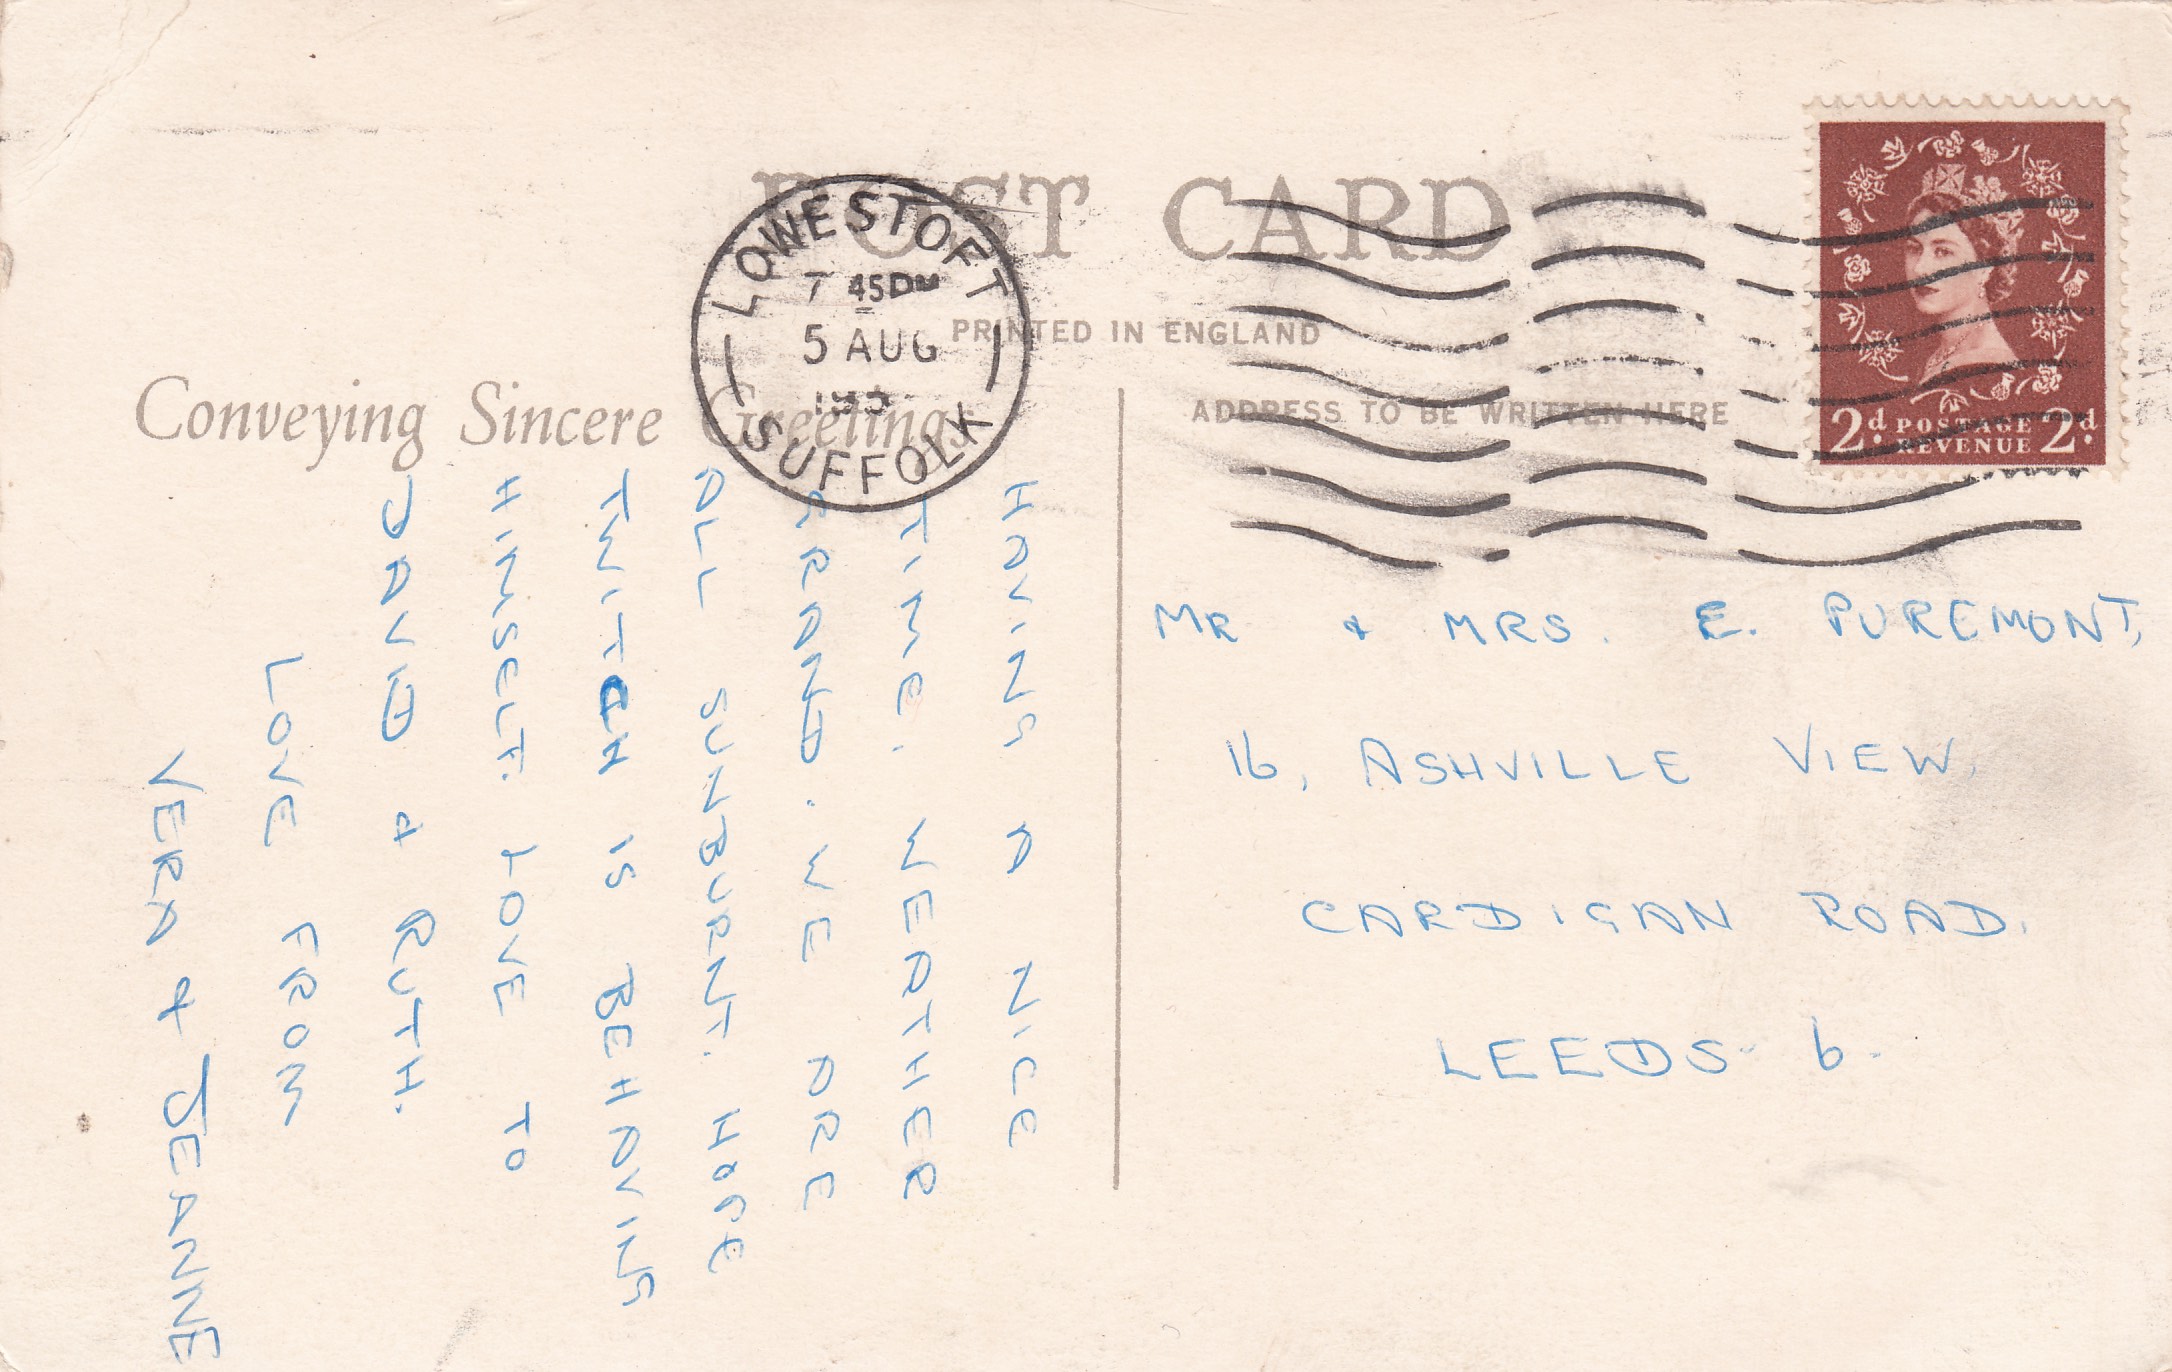 POST CARD
PRINTED IN ENGLAND
Conveying Sincere Greetings
ADDRESS TO BE WRITTEN HERE
LOWESTOFT
7 45 PM
5 AUG
SUFFOLK
2d. POSTAGE 2d.
REVENUE
HAVING A NICE
TIME. WEATHER
GRAND. WE ARE
ALL SUNBURNT. HOPE
TWITCH IS BEHAVING
HIMSELF. LOVE TO
DAVID & RUTH.
LOVE FROM
VERA & JEANNE
MR & MRS. E. PUREMONT,
16, ASHVILLE VIEW,
CARDIGAN ROAD.
LEEDS 6.